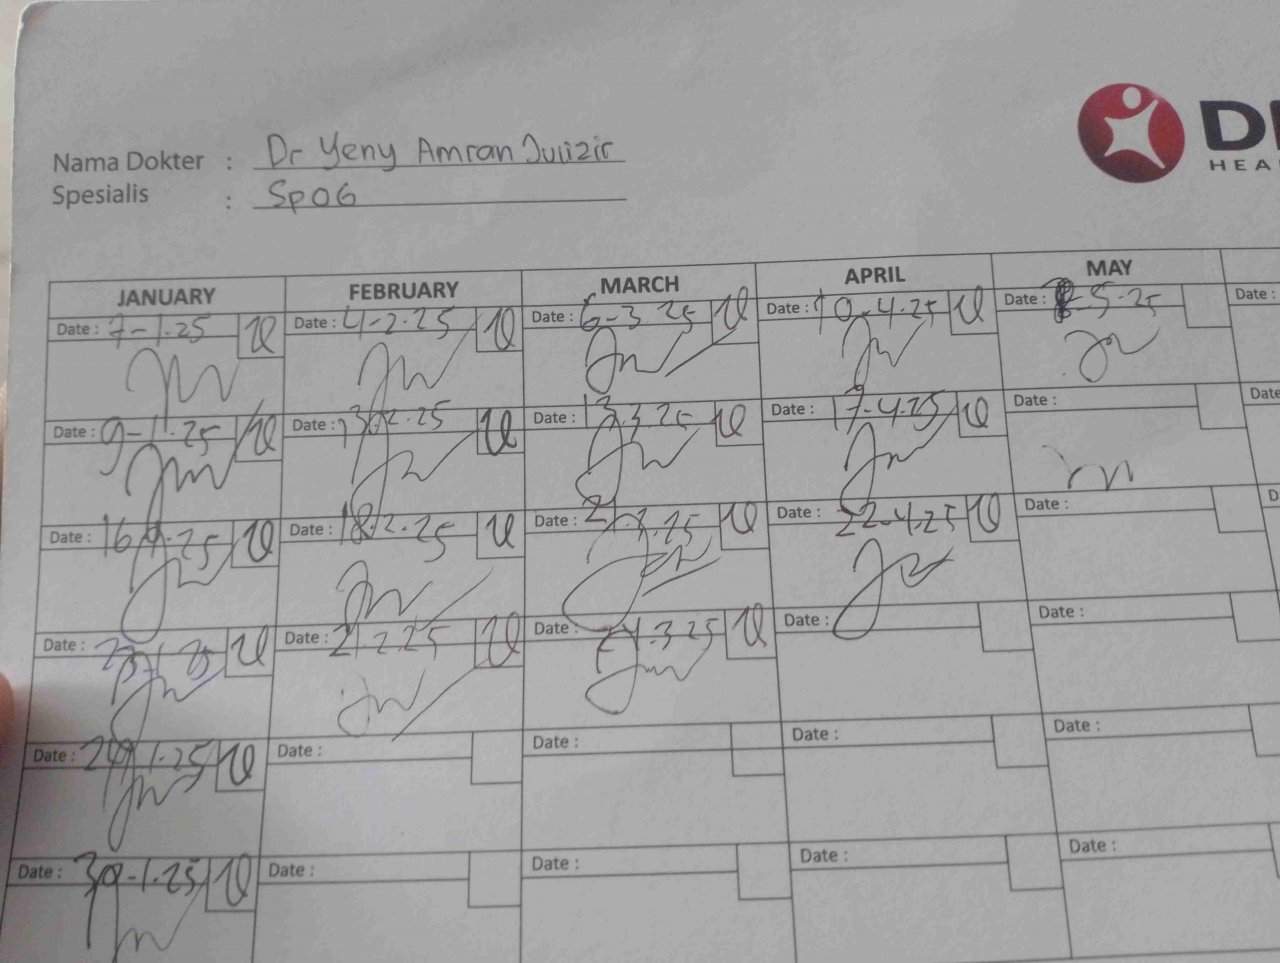 Nama Dokter : Dr Yeny Amran Julizir
Spesialis : SpOG
HEA
JANUARY FEBRUARY MARCH APRIL MAY
Date : 7-1.25 Date : 4-2.25 Date : 6-3.25 Date : 10-4.25 Date : 8-5-25 Date :
Date : 9-1.25 Date : 13.2.25 Date : 13.3.25 Date : 17-4.25 Date : Date
Date : 16.1.25 Date : 18.2.25 Date : Date : 22-4.25 Date : D
Date : Date : 21.2.25 Date : 24.3.25 Date : Date :
Date : 1.25 Date : Date : Date : Date :
Date : 30-1.25 Date : Date : Date : Date :